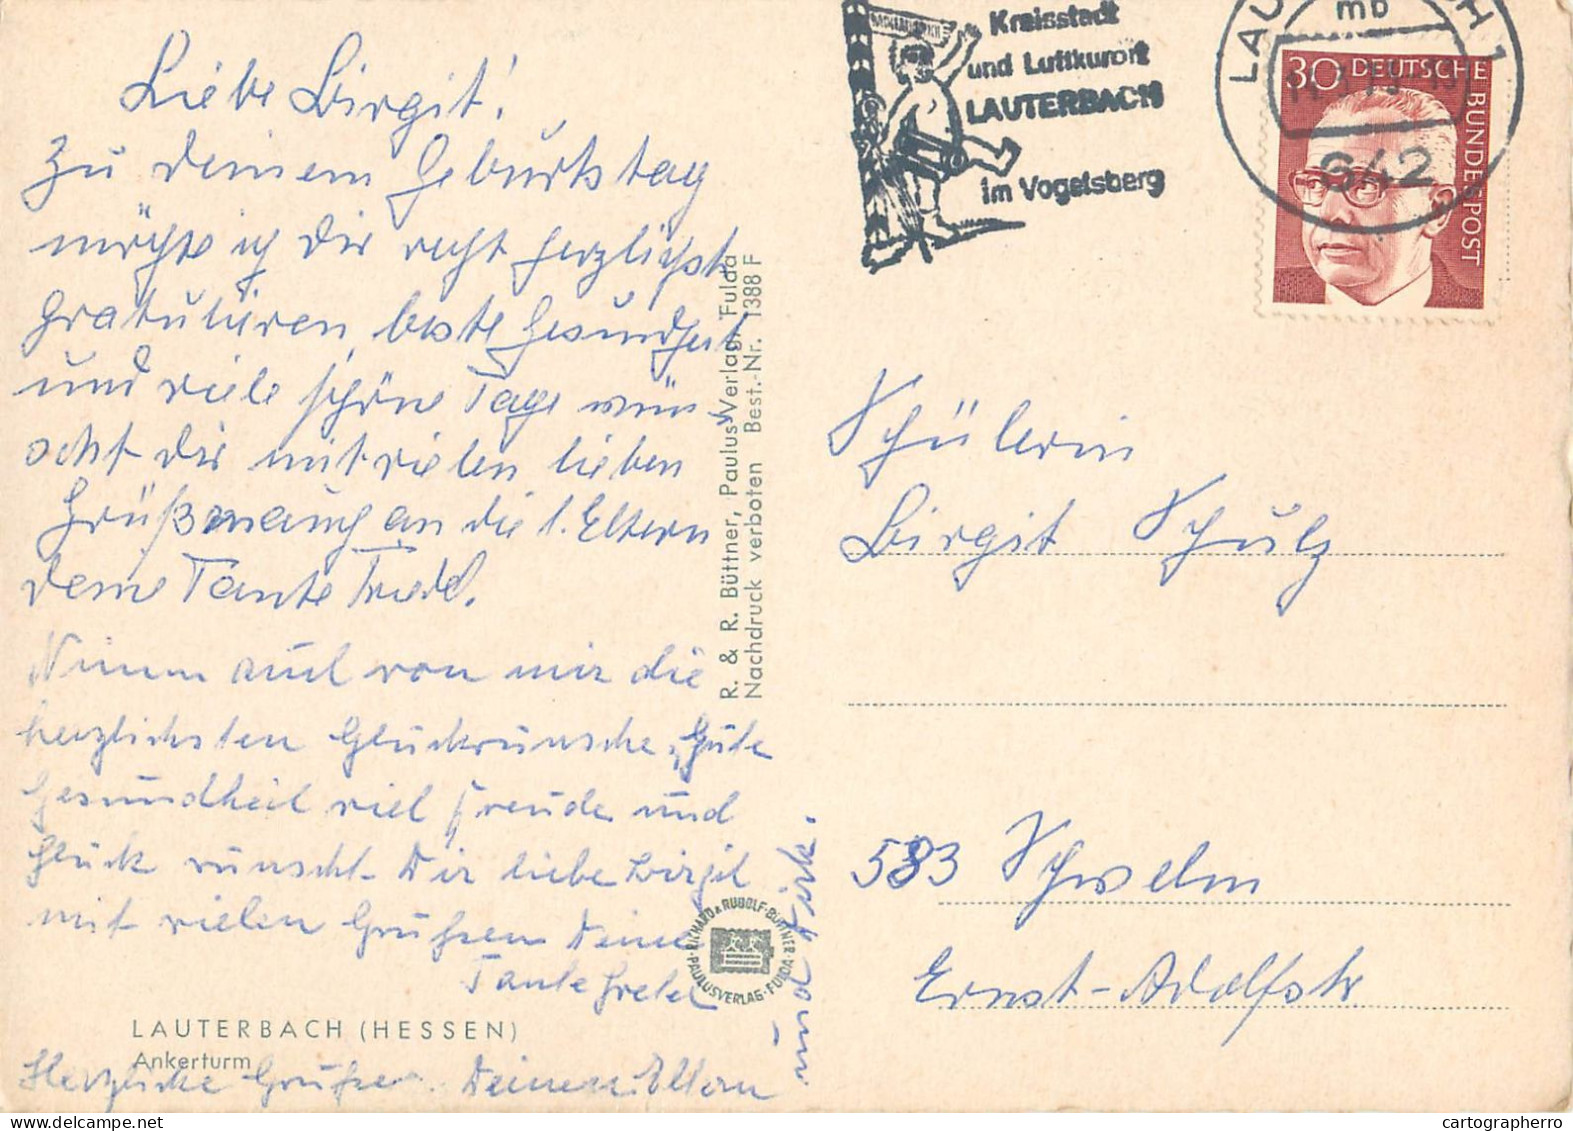 Liebe Birgit!
Zu deinem Geburtstag
möchte ich dir recht herzlichst
gratulieren, beste Gesundheit
und viele schöne Tage wün-
scht dir mit vielen lieben
Grüßen auch an die l. Eltern
deine Tante Trudel.
Nimm auch von mir die
herzlichsten Glückwünsche, Gute
Gesundheit viel Freude und
Glück wünscht Dir liebe Birgit
mit vielen Grüßen Deine
Tante Gretel
LAUTERBACH (HESSEN)
Ankerturm
Herzliche Grüße Deinen Eltern
und
R. & R. Büttner, Paulus-Verlag, Fulda
Nachdruck verboten Best.-Nr. 1388 F
RICHARD & RUDOLF BÜTTNER
PAULUSVERLAG · FULDA
Kreisstadt
und Luftkurort
LAUTERBACH
im Vogelsberg
mb
642
30 DEUTSCHE
BUNDESPOST
Schülerin
Birgit Schulz
583 Schwelm
Ernst-Adolfstr
cartographerro